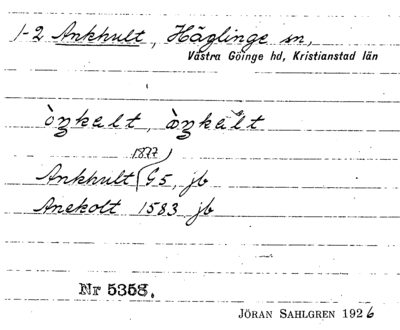 1-2 Ankhult, Häglinge sn,
Västra Göinge hd, Kristianstad län
1877
Ankhult G5, jb
Anekolt 1583 jb
Nr 5358.
JÖRAN SAHLGREN 1926